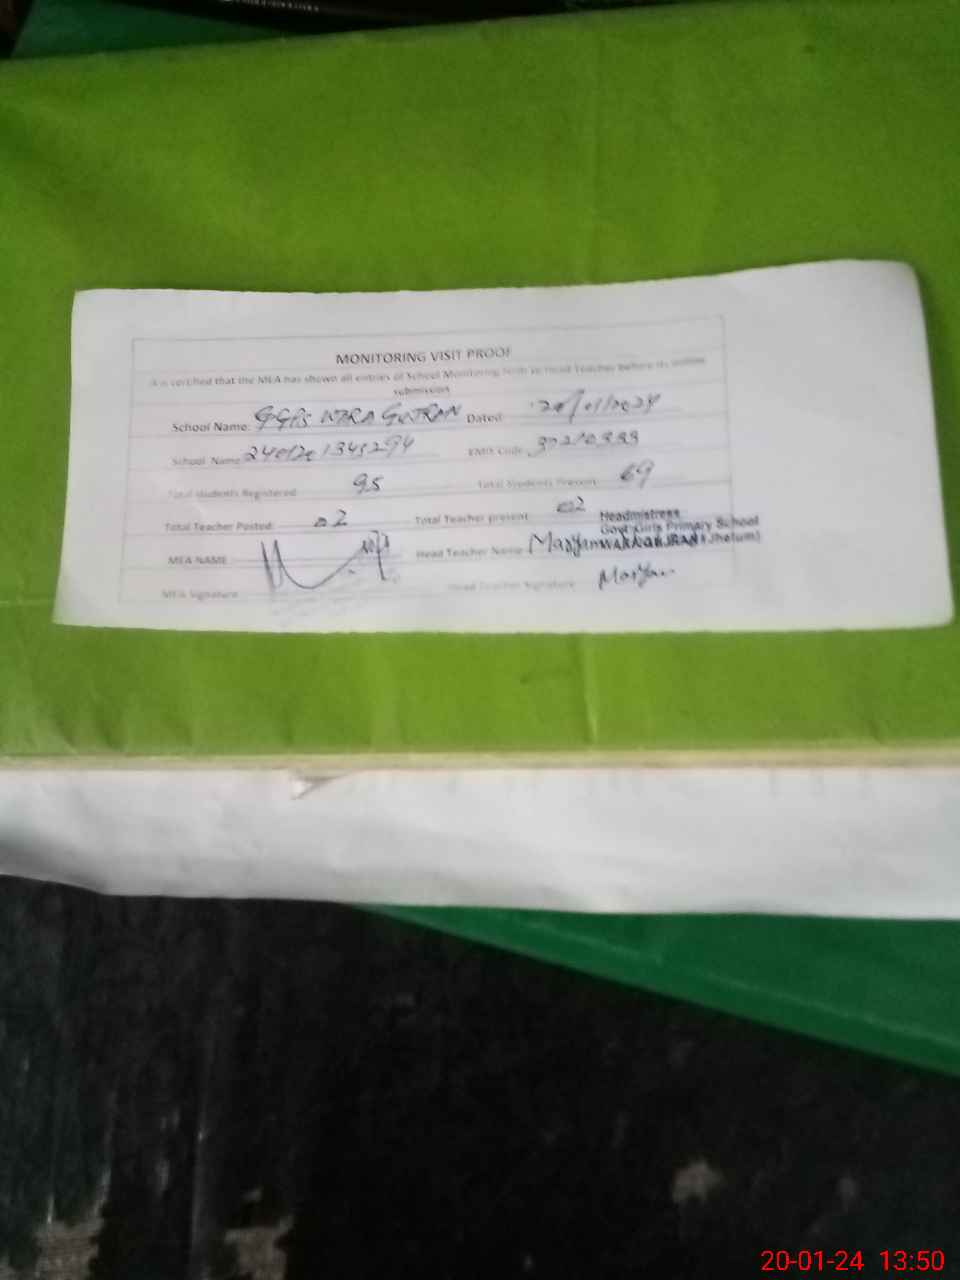 MONITORING VISIT PROOF
It is certified that the MEA has shown all entries of School Monitoring Form to Head Teacher before its online
submission
School Name: GGPS Dated: 20/01/2024
School Name
EMIS Code
Total Students Registered 95 Total Students Present 69
Total Teacher Posted: 02 Total Teacher present 02
Headmistress
Govt: Girls Primary School
MEA NAME Head Teacher Name Maryam (Jhelum)
MEA Signature Head Teacher Signature Maryam
20-01-24 13:50